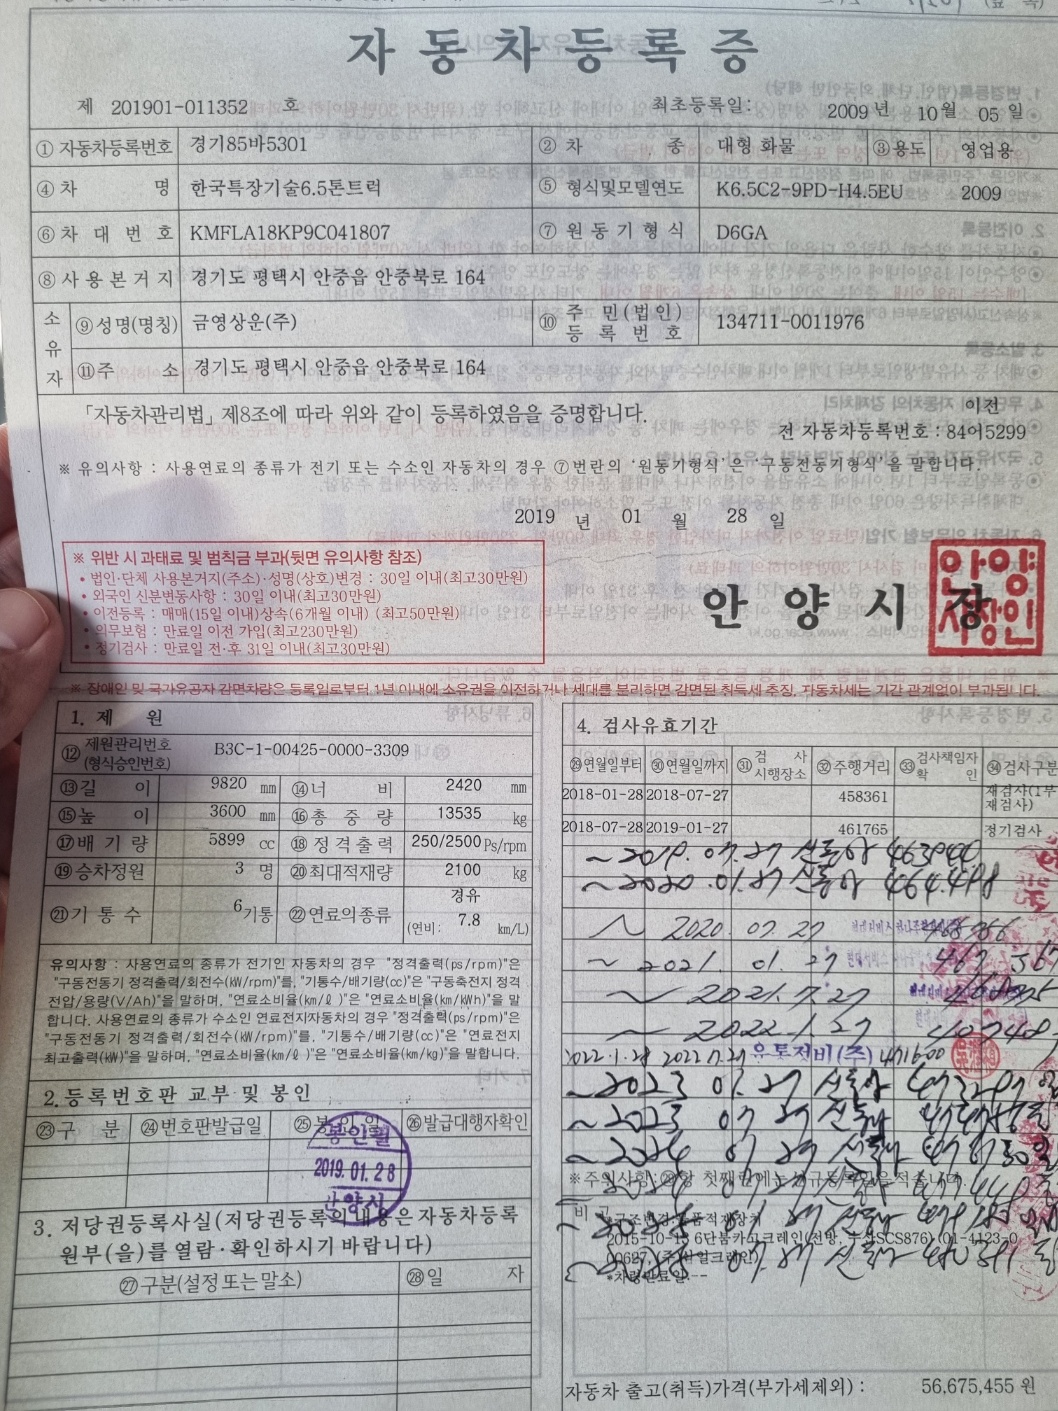 자동차등록증
제 201901-011352 호 최초등록일: 2009 년 10 월 05 일
① 자동차등록번호 경기85바5301 ② 차 종 대형 화물 ③용도 영업용
④ 차 명 한국특장기술6.5톤트럭 ⑤ 형식및모델연도 K6.5C2-9PD-H4.5EU 2009
⑥ 차 대 번 호 KMFLA18KP9C041807 ⑦ 원 동 기 형 식 D6GA
⑧ 사 용 본 거 지 경기도 평택시 안중읍 안중북로 164
소유자 ⑨ 성명(명칭) 금영상운(주) ⑩ 주 민(법 인) 등 록 번 호 134711-0011976
⑪ 주 소 경기도 평택시 안중읍 안중북로 164
「자동차관리법」 제8조에 따라 위와 같이 등록하였음을 증명합니다. 이전
전 자동차등록번호 : 84어5299
※ 유의사항 : 사용연료의 종류가 전기 또는 수소인 자동차의 경우 ⑦번란의 '원동기형식'은 '구동전동기형식'을 말합니다.
2019 년 01 월 28 일
※ 위반 시 과태료 및 범칙금 부과(뒷면 유의사항 참조)
• 법인·단체 사용본거지(주소)·성명(상호)변경 : 30일 이내(최고30만원)
• 외국인 신분변동사항 : 30일 이내(최고30만원)
• 이전등록 : 매매(15일 이내)상속(6개월 이내) (최고50만원)
• 의무보험 : 만료일 이전 가입(최고230만원)
• 정기검사 : 만료일 전·후 31일 이내(최고30만원)
안 양 시 장
안양시장인
※ 장애인 및 국가유공자 감면차량은 등록일로부터 1년 이내에 소유권을 이전하거나 세대를 분리하면 감면된 취득세 추징, 자동차세는 기간 관계없이 부과됩니다.
1. 제 원
⑫ 제원관리번호 (형식승인번호) B3C-1-00425-0000-3309
⑬ 길 이 9820 mm ⑭ 너 비 2420 mm
⑮ 높 이 3600 mm ⑯ 총 중 량 13535 kg
⑰ 배 기 량 5899 cc ⑱ 정 격 출 력 250/2500 Ps/rpm
⑲ 승차정원 3 명 ⑳ 최대적재량 2100 kg
㉑ 기 통 수 6 기통 ㉒ 연료의종류 경유 (연비: 7.8 km/L)
유의사항 : 사용연료의 종류가 전기인 자동차의 경우 "정격출력(ps/rpm)"은
"구동전동기 정격출력/회전수(kW/rpm)"를, "기통수/배기량(cc)"은 "구동축전지 정격
전압/용량(V/Ah)"을 말하며, "연료소비율(km/ℓ)"은 "연료소비율(km/kWh)"을 말
합니다. 사용연료의 종류가 수소인 연료전지자동차의 경우 "정격출력(ps/rpm)"은
"구동전동기 정격출력/회전수(kW/rpm)"를, "기통수/배기량(cc)"은 "연료전지
최고출력(kW)"을 말하며, "연료소비율(km/ℓ)"은 "연료소비율(km/kg)"을 말합니다.
2. 등록번호판 교부 및 봉인
㉓ 구 분 ㉔ 번호판발급일 ㉕ 봉 인 일 ㉖ 발급대행자확인
봉인필
2019. 01. 2 8
안양시
3. 저당권등록사실(저당권등록의 내용은 자동차등록
원부(을)를 열람·확인하시기 바랍니다)
㉗ 구분(설정 또는 말소) ㉘ 일 자
4. 검사유효기간
㉙ 연월일부터 ㉚ 연월일까지 ㉛ 검 사 시행장소 ㉜ 주행거리 ㉝ 검사책임자 확 인 ㉞ 검사구분
2018-01-28 2018-07-27 458361 재검사(1부 재검사)
2018-07-28 2019-01-27 461765 정기검사
~ 2019. 07. 27
~ 2020. 01. 27
~ 2020. 07. 27
~ 2021. 01. 27
~ 2021. 7. 27
~ 2022. 1. 27
2022. 1. 28 2022. 7. 27 유토정비(주) 471600
~ 2023 01. 27
~ 2023 07 27
※주의사항:
비 고
구조변경
2015-10-13 6단붐카고크레인(전방, 수산SCS876) (01-4123-0
56,675,455 원
자동차 출고(취득)가격(부가세제외) :